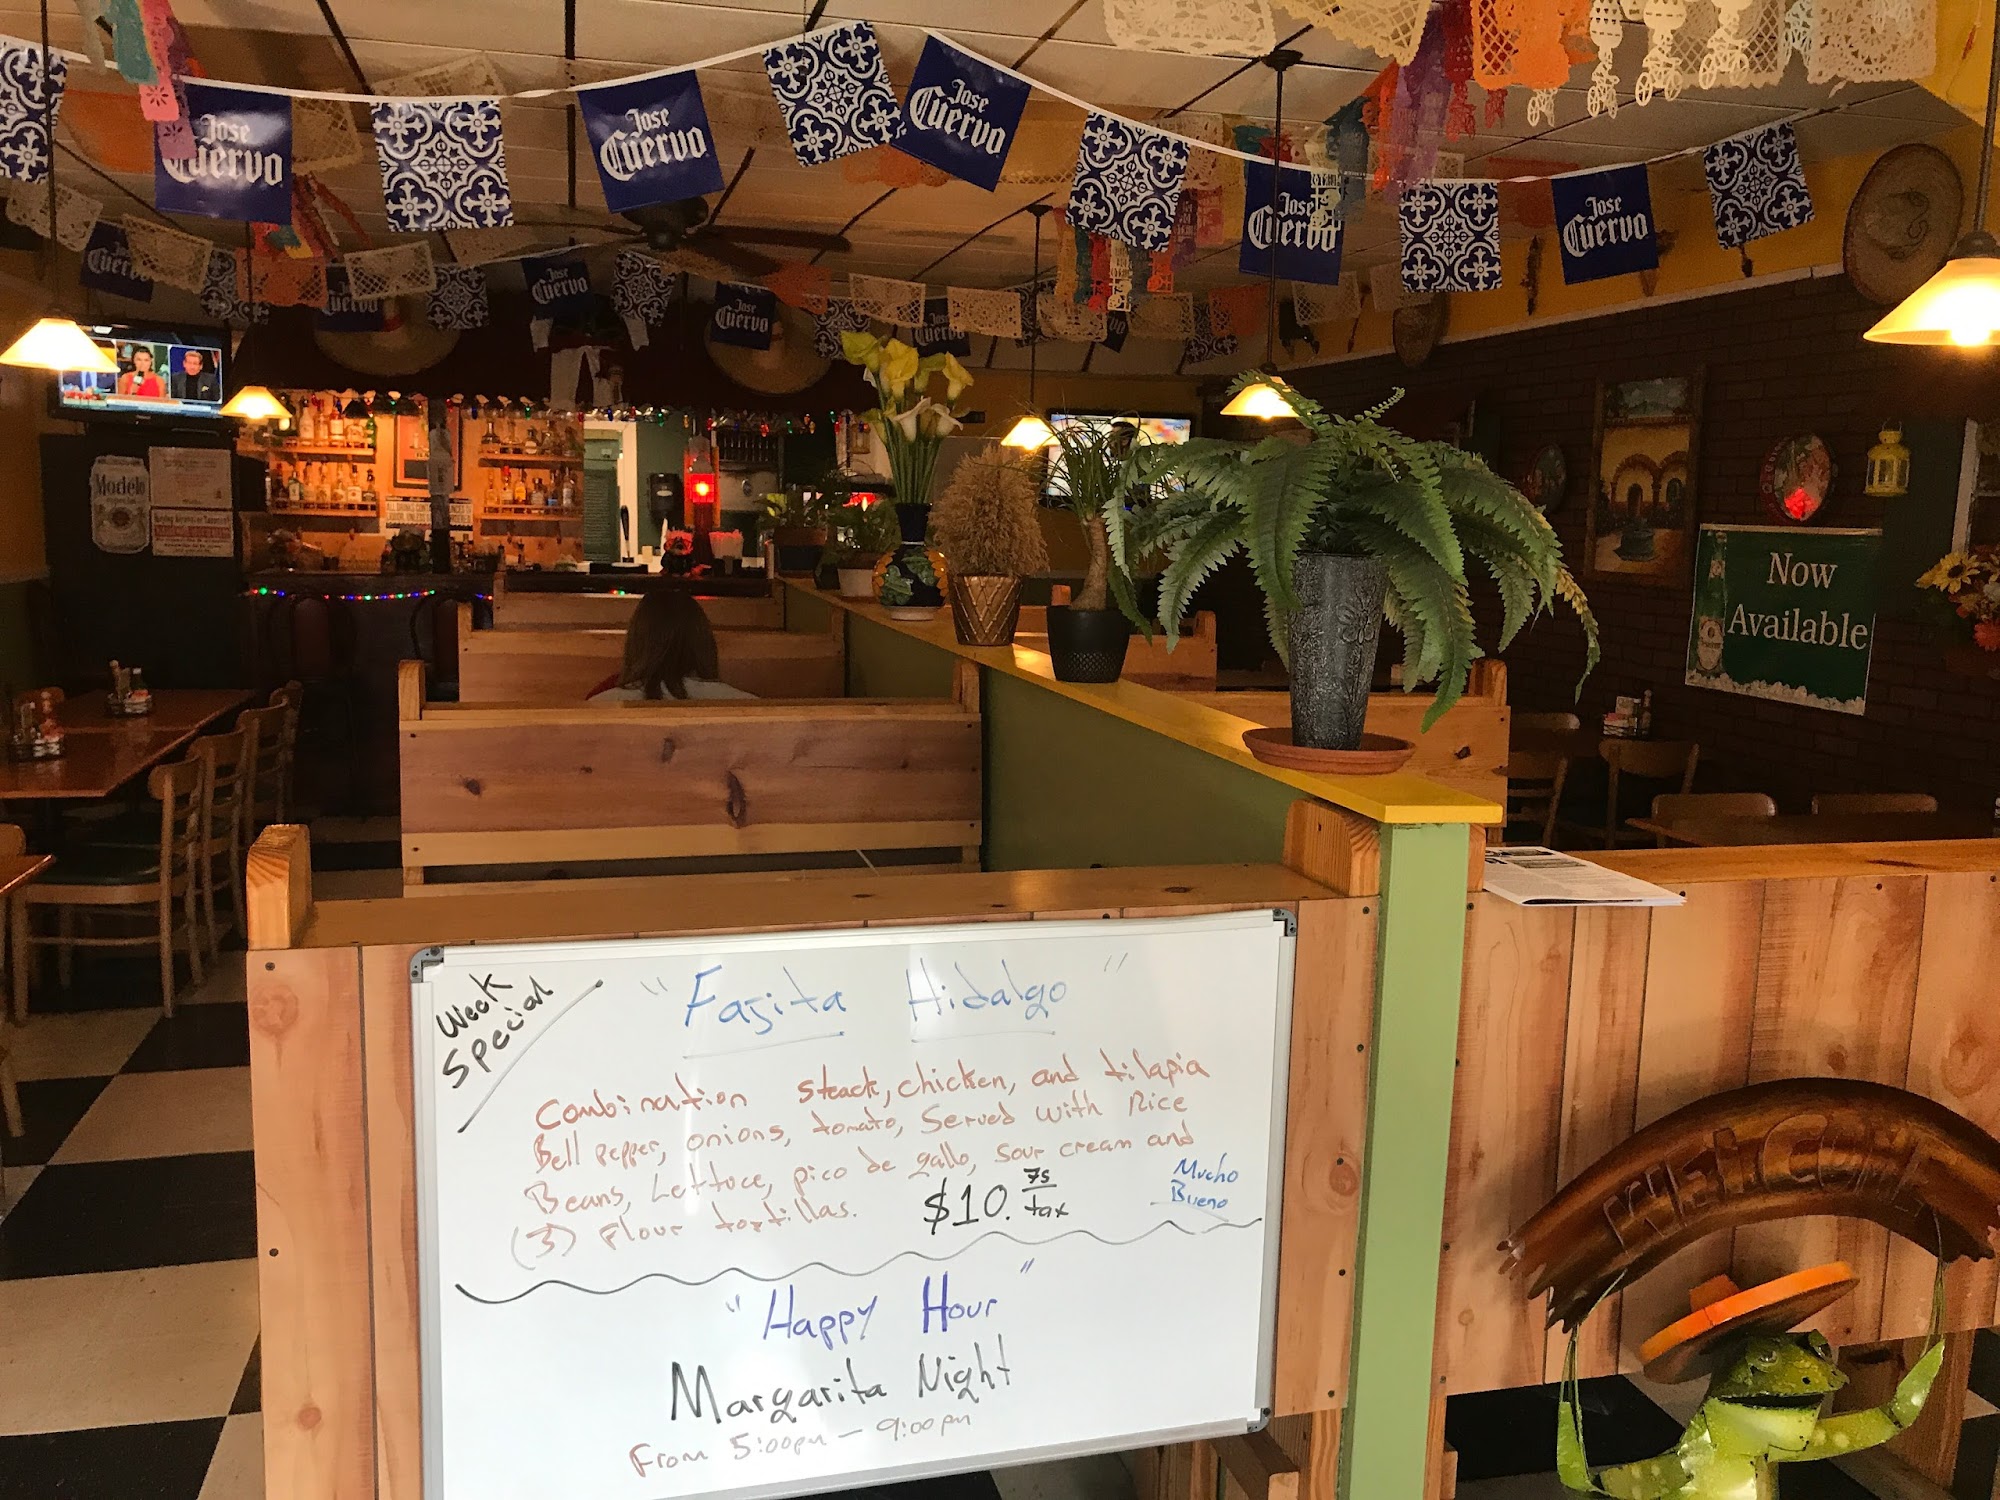 Jose
Cuervo
Jose
Cuervo
Jose
Cuervo
Jose
Cuervo
Jose
Cuervo
Cuervo
Jose
Cuervo
Jose
Cuervo
Modelo
Now
Available
Week
Special
"Fajita Hidalgo"
Combination steack, chicken, and tilapia
Bell pepper, onions, tomato, Served with Rice
Beans, Lettuce, pico de gallo, sour cream and
(3) Flour tortillas. $10.75 tax
Mucho
Bueno
"Happy Hour"
Margarita Night
From 5:00pm - 9:00pm
WELCOME